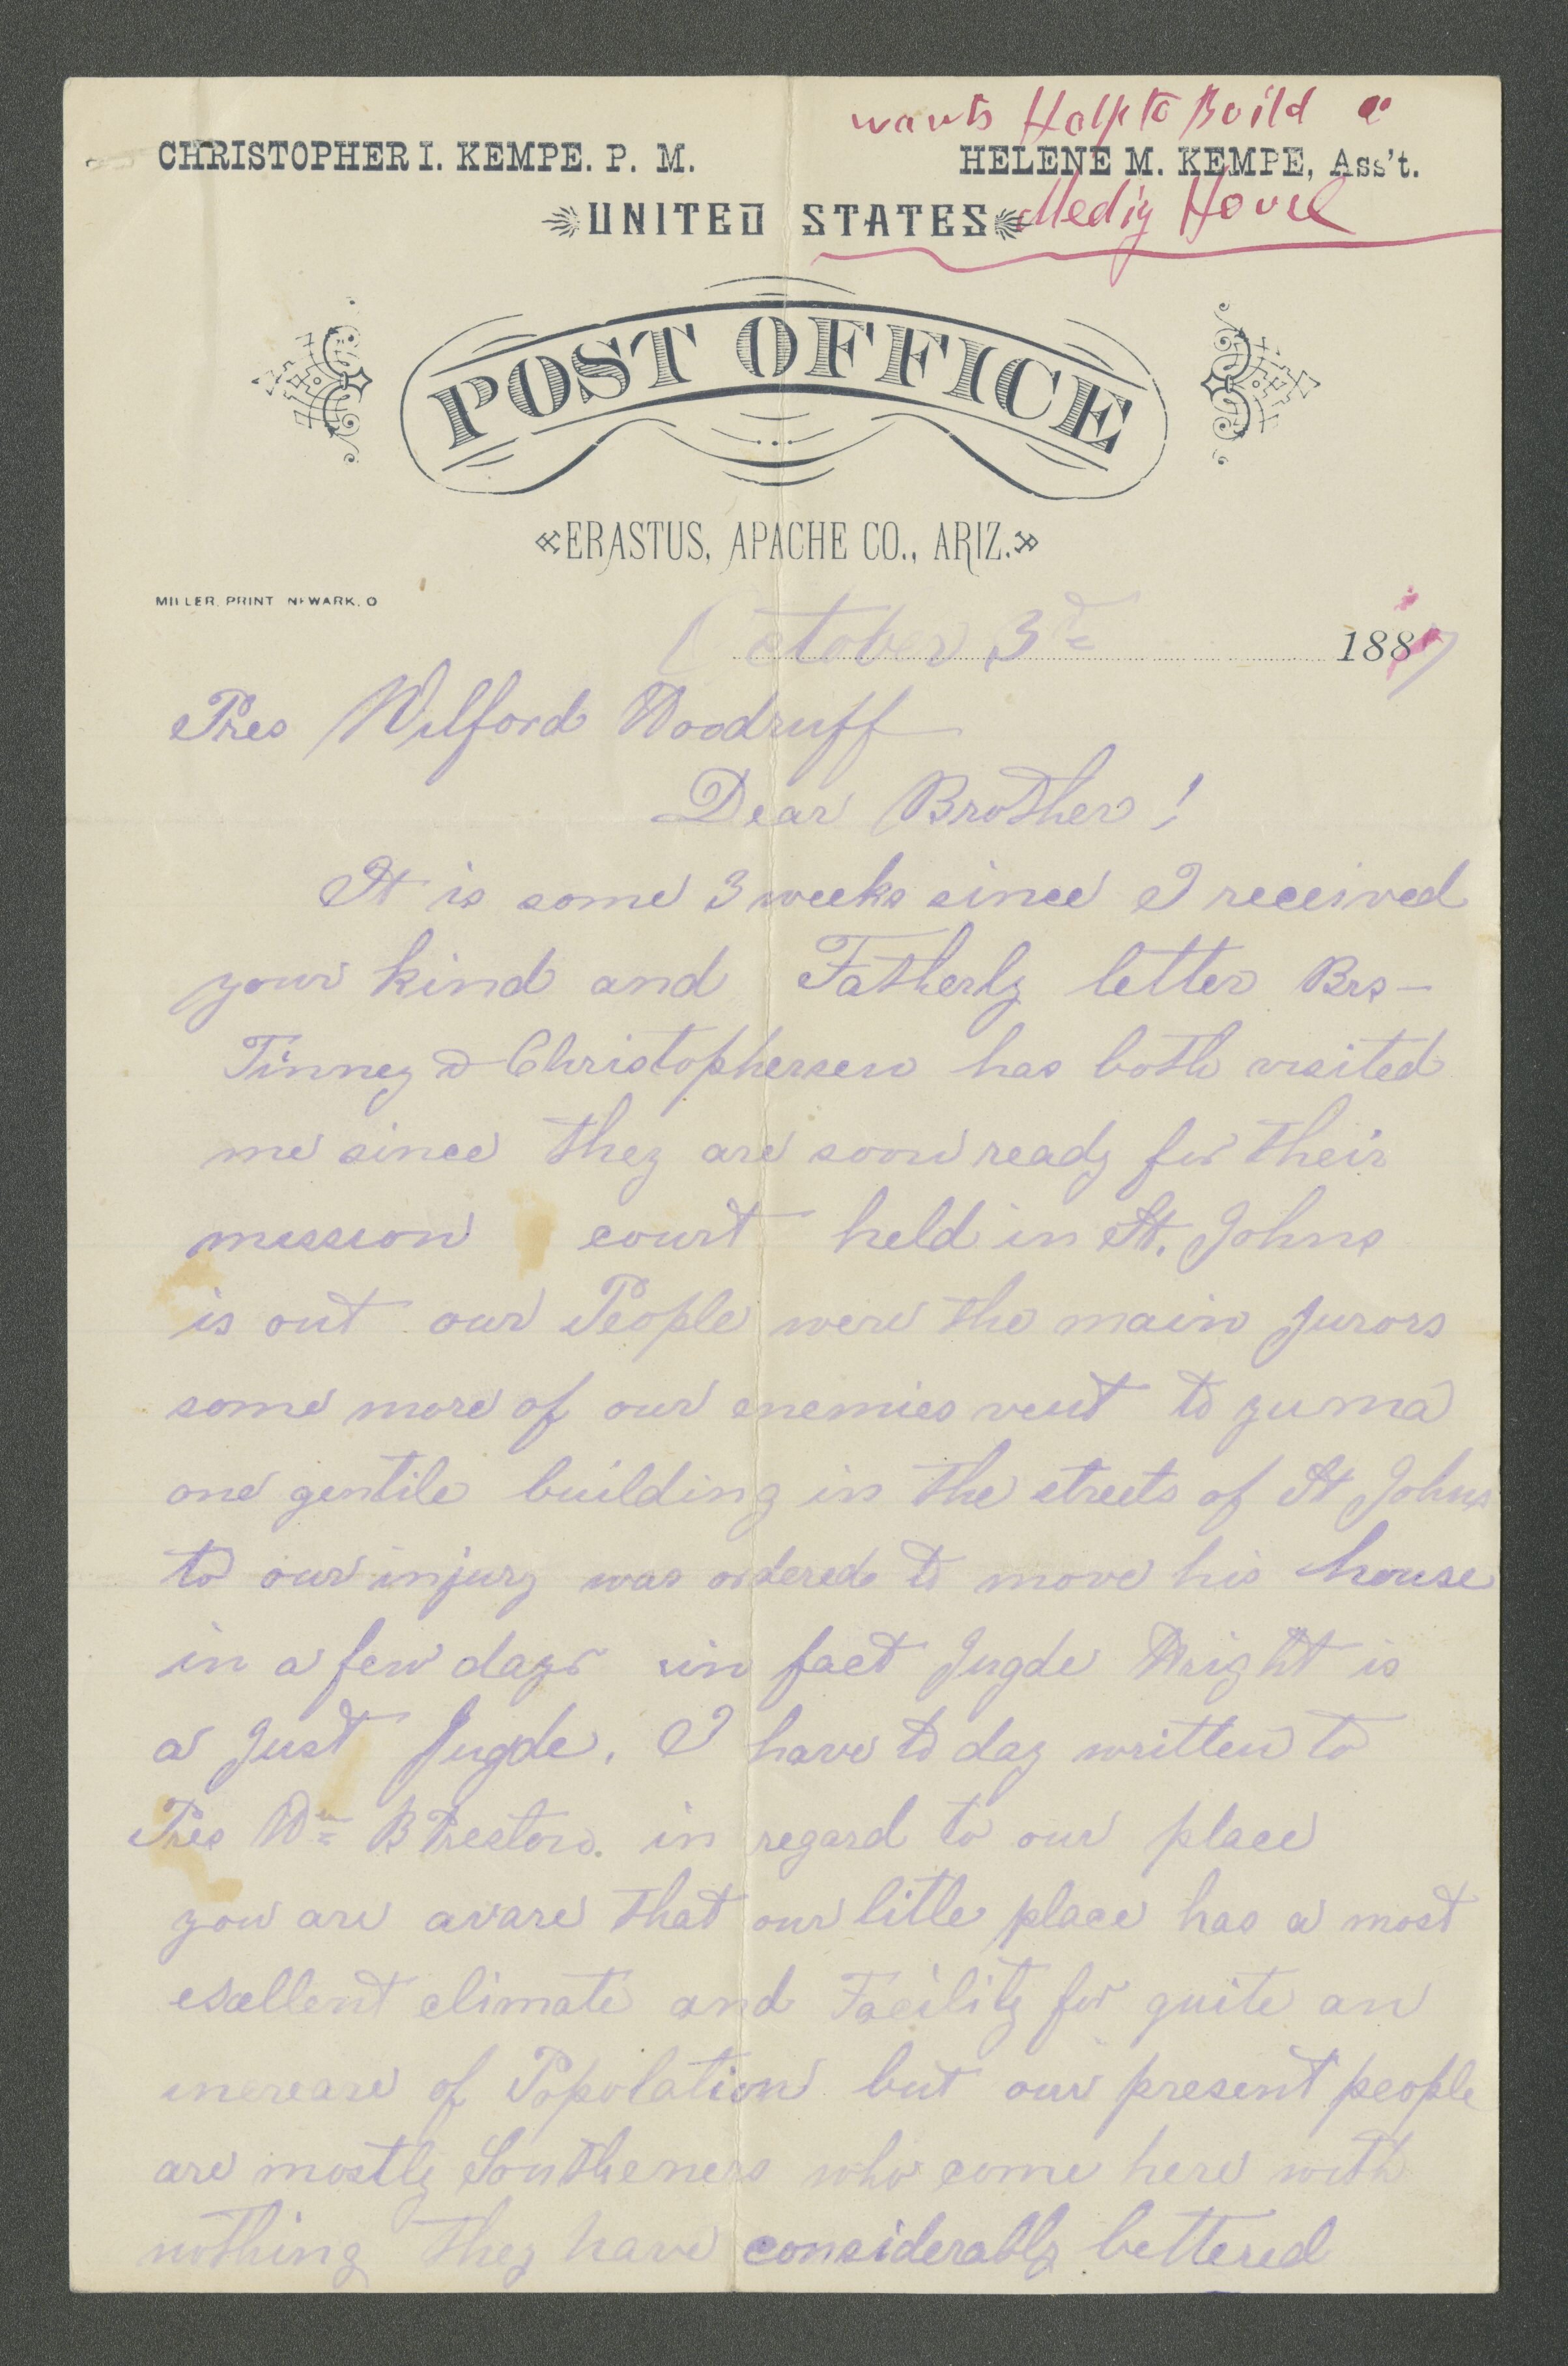 wants Help to Build a
CHRISTOPHER I. KEMPE. P. M.
HELENE M. KEMPE, Ass't.
Meetig House
UNITED STATES
POST OFFICE
ERASTUS, APACHE CO., ARIZ.
MILLER, PRINT NEWARK, O
October 3rd 1887
Pres Wilford Woodruff
Dear Brother!
It is some 3 weeks since I received
your kind and Fatherly letter Brs-
Tinney & Christophersen has both visited
me since they are soon ready for their
mission court held in St. Johns
is out our People were the main Jurors
some more of our enemies vent to yuma
one gentile building in the streets of St Johns
to our injury was ordered to move his house
in a few days in fact Jugde Wright is
a just Jugde. I have to day written to
Pres Wm B Preston. in regard to our place
you are avare that our litle place has a most
exellent climate and Facility for quite an
increase of Popolation but our present people
are mostly Southeners who come here with
nothing they have considerably bettered